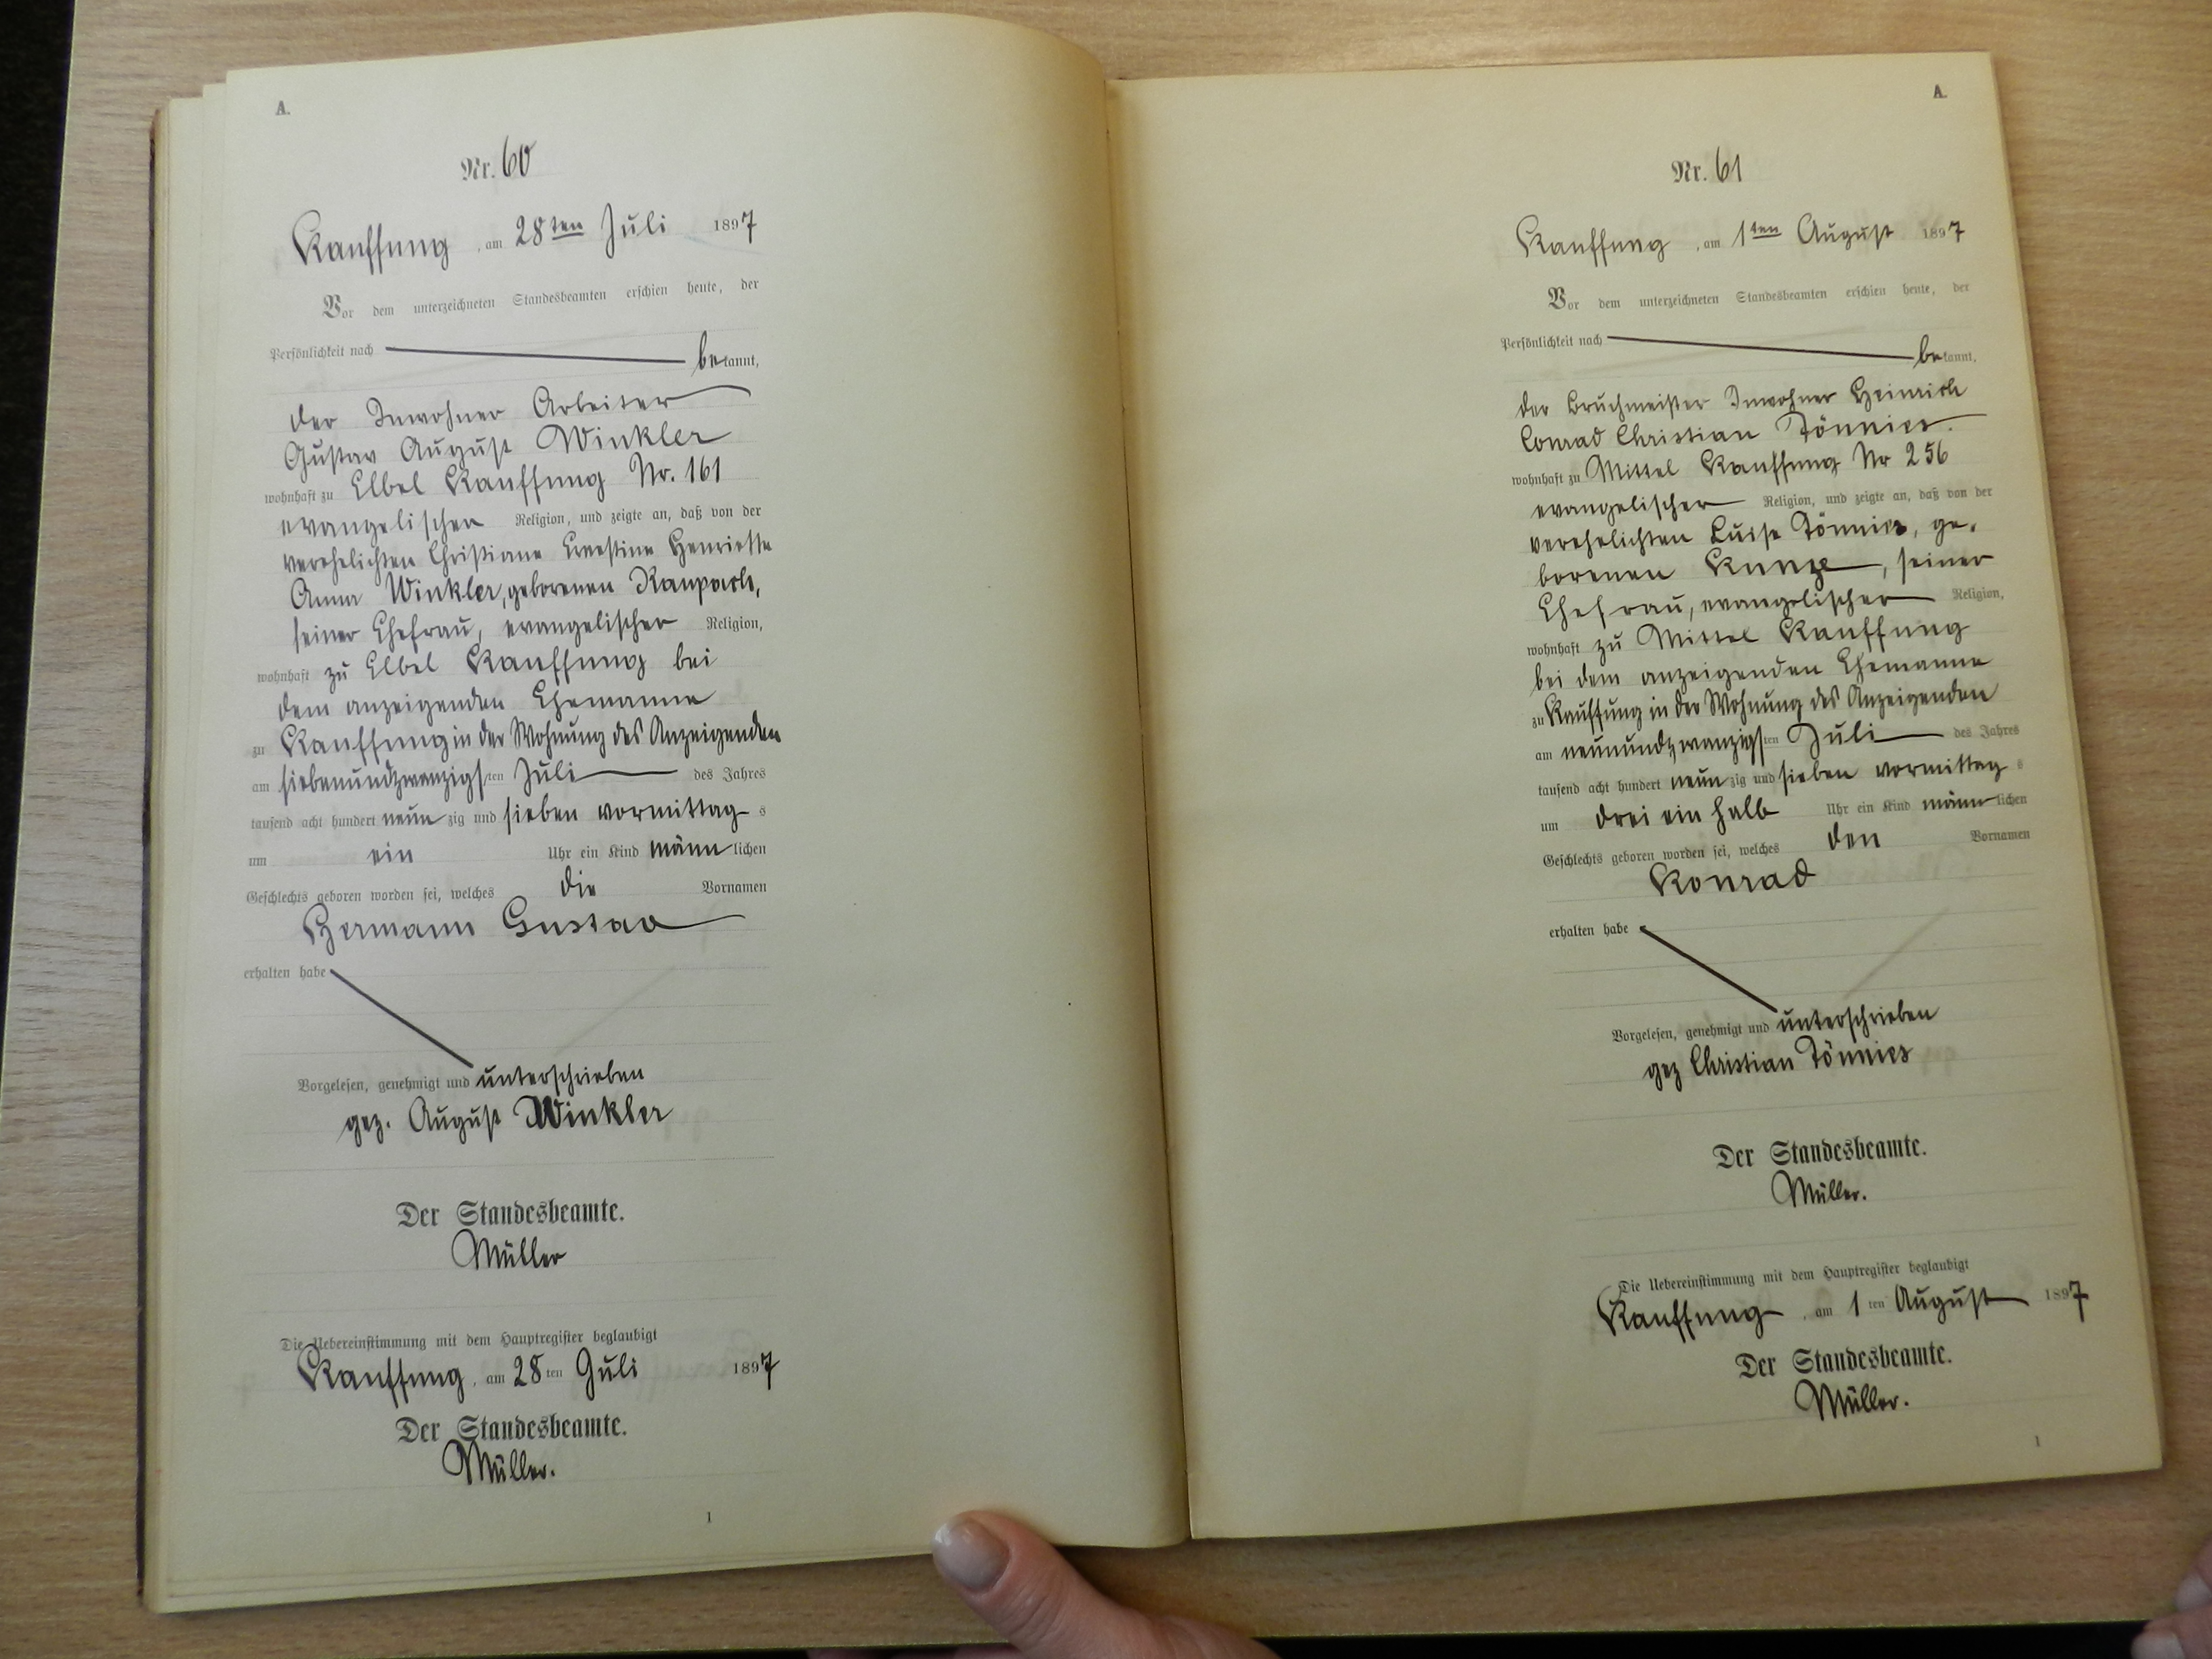 A.
Nr. 60
Kauffung, am 28ten Juli 1897
Vor dem unterzeichneten Standesbeamten erschien heute, der
Persönlichkeit nach bekannt,
der Inwohner Arbeiter
Gustav August Winkler
wohnhaft zu Elbel Kauffung Nr. 161
evangelischer Religion, und zeigte an, daß von der
verehelichten Christiane Ernestine Henriette
Anna Winkler, geborenen Raupach,
seiner Ehefrau, evangelischer Religion,
wohnhaft zu Elbel Kauffung bei
dem anzeigenden Ehemanne
zu Kauffung in der Wohnung des Anzeigenden
am siebenundzwanzigsten Juli des Jahres
tausend acht hundert neunzig und sieben vormittags
um ein Uhr ein Kind männlichen
Geschlechts geboren worden sei, welches die Vornamen
Hermann Gustav
erhalten habe
Vorgelesen, genehmigt und unterschrieben
gez. August Winkler
Der Standesbeamte.
Müller
Die Uebereinstimmung mit dem Hauptregister beglaubigt
Kauffung, am 28ten Juli 1897
Der Standesbeamte.
Müller.
1
A.
Nr. 61
Kauffung, am 1ten August 1897
Vor dem unterzeichneten Standesbeamten erschien heute, der
Persönlichkeit nach bekannt,
der Bruchmeister Inwohner Heinrich
Conrad Christian Tönnies.
wohnhaft zu Mittel Kauffung Nr 256
evangelischer Religion, und zeigte an, daß von der
verehelichten Luise Tönnies, ge-
borenen Kunze, seiner
Ehefrau, evangelischer Religion,
wohnhaft zu Mittel Kauffung
bei dem anzeigenden Ehemanne
zu Kauffung in der Wohnung des Anzeigenden
am neunundzwanzigsten Juli des Jahres
tausend acht hundert neunzig und sieben vormittags
um drei ein halb Uhr ein Kind männlichen
Geschlechts geboren worden sei, welches den Vornamen
Konrad
erhalten habe
Vorgelesen, genehmigt und unterschrieben
gez Christian Tönnies
Der Standesbeamte.
Müller.
Die Uebereinstimmung mit dem Hauptregister beglaubigt
Kauffung, am 1ten August 1897
Der Standesbeamte.
Müller.
1